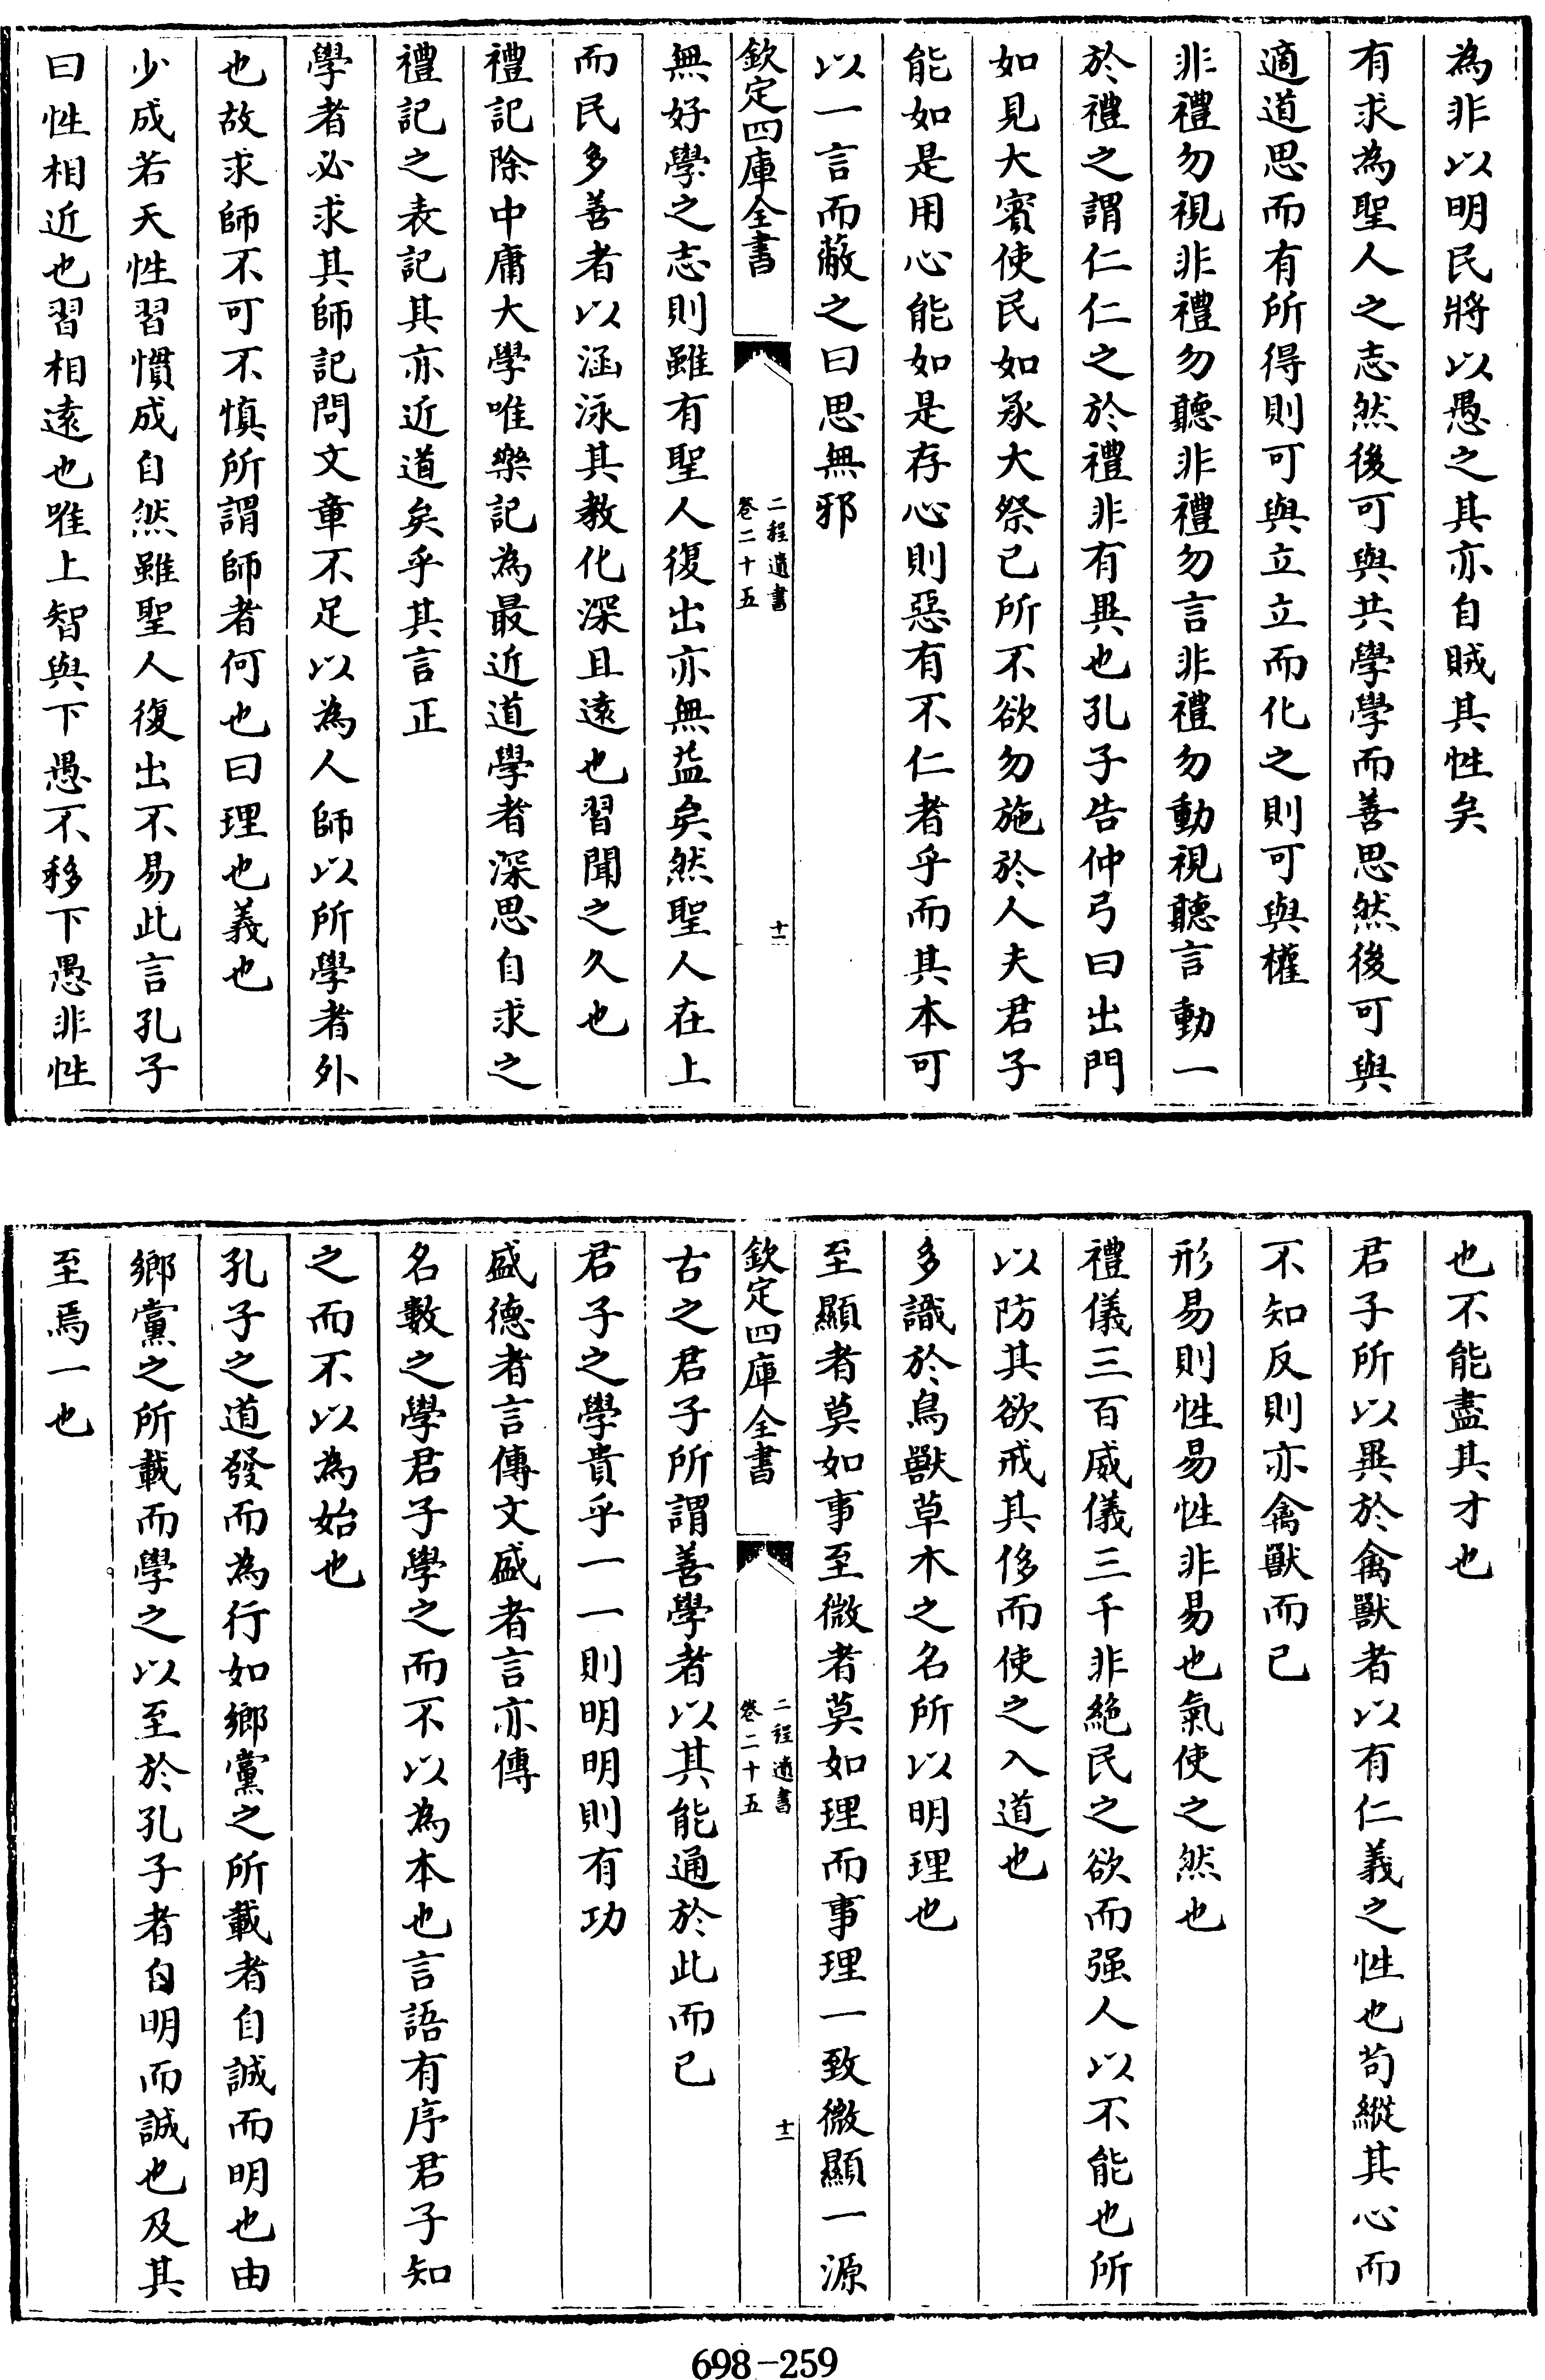 為非以明民將以愚之其亦自賊其性矣
有求為聖人之志然後可與共學學而善思然後可與
適道思而有所得則可與立立而化之則可與權
非禮勿視非禮勿聽非禮勿言非禮勿動視聽言動一
於禮之謂仁仁之於禮非有異也孔子告仲弓曰出門
如見大賓使民如承大祭已所不欲勿施於人夫君子
能如是用心能如是存心則惡有不仁者乎而其本可
以一言而蔽之曰思無邪
欽定四庫全書
二程遺書
卷二十五
十一
無好學之志則雖有聖人復出亦無益矣然聖人在上
而民多善者以涵泳其教化深且遠也習聞之久也
禮記除中庸大學唯樂記為最近道學者深思自求之
禮記之表記其亦近道矣乎其言正
學者必求其師記問文章不足以為人師以所學者外
也故求師不可不慎所謂師者何也曰理也義也
少成若天性習慣成自然雖聖人復出不易此言孔子
曰性相近也習相遠也唯上智與下愚不移下愚非性
也不能盡其才也
君子所以異於禽獸者以有仁義之性也苟縱其心而
不知反則亦禽獸而已
形易則性易性非易也氣使之然也
禮儀三百威儀三千非絶民之欲而强人以不能也所
以防其欲戒其侈而使之入道也
多識於鳥獸草木之名所以明理也
至顯者莫如事至微者莫如理而事理一致微顯一源
欽定四庫全書
二程遺書
卷二十五
十二
古之君子所謂善學者以其能通於此而已
君子之學貴乎一一則明明則有功
盛德者言傳文盛者言亦傳
名數之學君子學之而不以為本也言語有序君子知
之而不以為始也
孔子之道發而為行如鄉黨之所載者自誠而明也由
鄉黨之所載而學之以至於孔子者自明而誠也及其
至焉一也
698-259